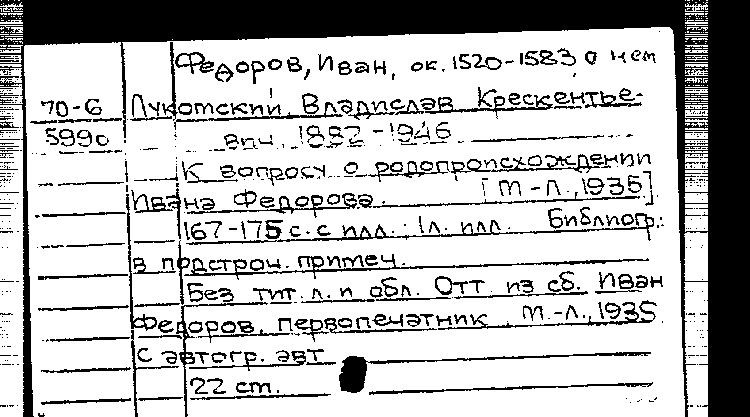 Федоров, Иван, ок. 1520-1583, о нем
70-6 Лукотский, Владислав Крескентье-
5990 вич, 1882-1946
К вопросу о родопроисхождении
Ивана Федорова. [М.-Л., 1935]
167-175 с. с илл.; 1л. илл. Библиогр.:
в подстроч. примеч.
Без тит. л. и обл. Отт. из сб. Иван
Федоров, первопечатник. М.-Л., 1935
с автогр. авт.
22 cm.